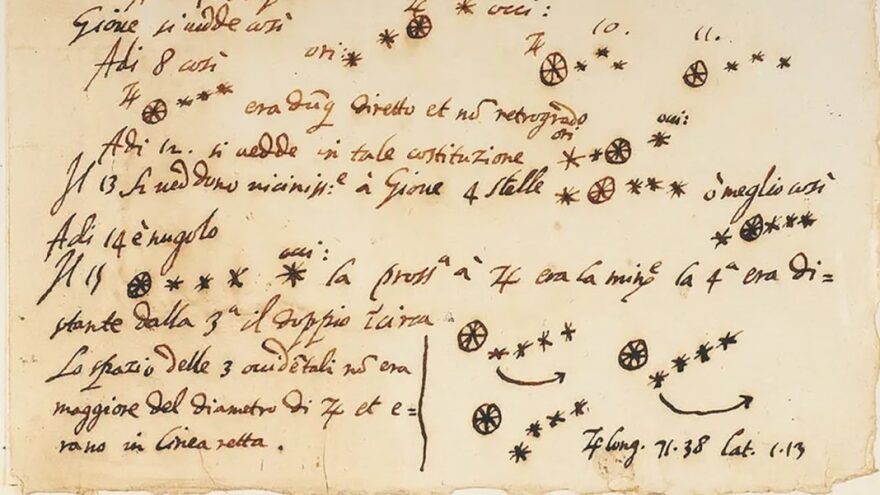 Giove si vedde così ♃ occi:
Adi 8 così ori: ♃ 10. 11.
♃ era dũq̃ diretto et nõ retrogrado
ori: occi:
Adi 12. si vedde in tale costituzione
Il 13 si veddono vicinissᵉ à Giove 4 stelle ò meglio così
Adi 14 è nugolo
occi:
Il 15 la prossᵃ à ♃ era la minᵉ la 4ᵃ era di=
stante dalla 3ᵃ il doppio ĩcirca
Lo spazio delle 3 occidẽtali nõ era
maggiore del diametro di ♃ et e=
rano in linea retta.
♃ long. 71.38 lat. 1.13